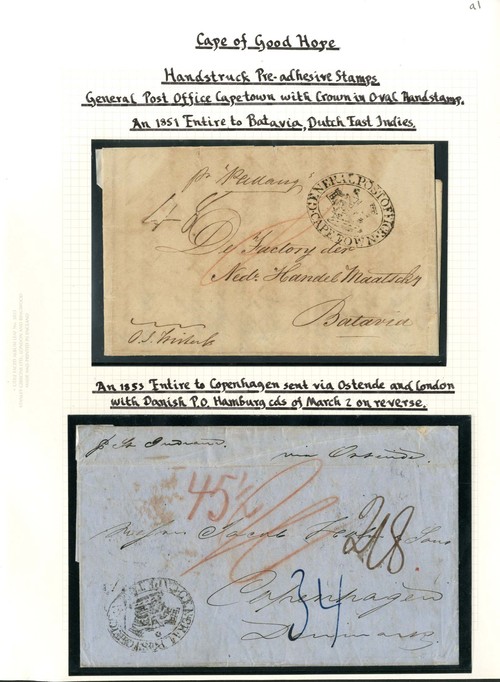 a1
Cape of Good Hope
Handstruck Pre-adhesive Stamps.
General Post Office Capetown with Crown in Oval Handstamp.
An 1851 Entire to Batavia, Dutch East Indies.
pr "Padang"
GENERAL POST OFFICE
CAPETOWN
De Factory der
Nedr Handel Maatschy
Batavia
An 1853 Entire to Copenhagen sent via Ostende and London
with Danish P.O. Hamburg cds of March 2 on reverse.
via Ostende
45½
248
Jacob & Sons
34
Copenhagen
Denmark
GENERAL POST OFFICE